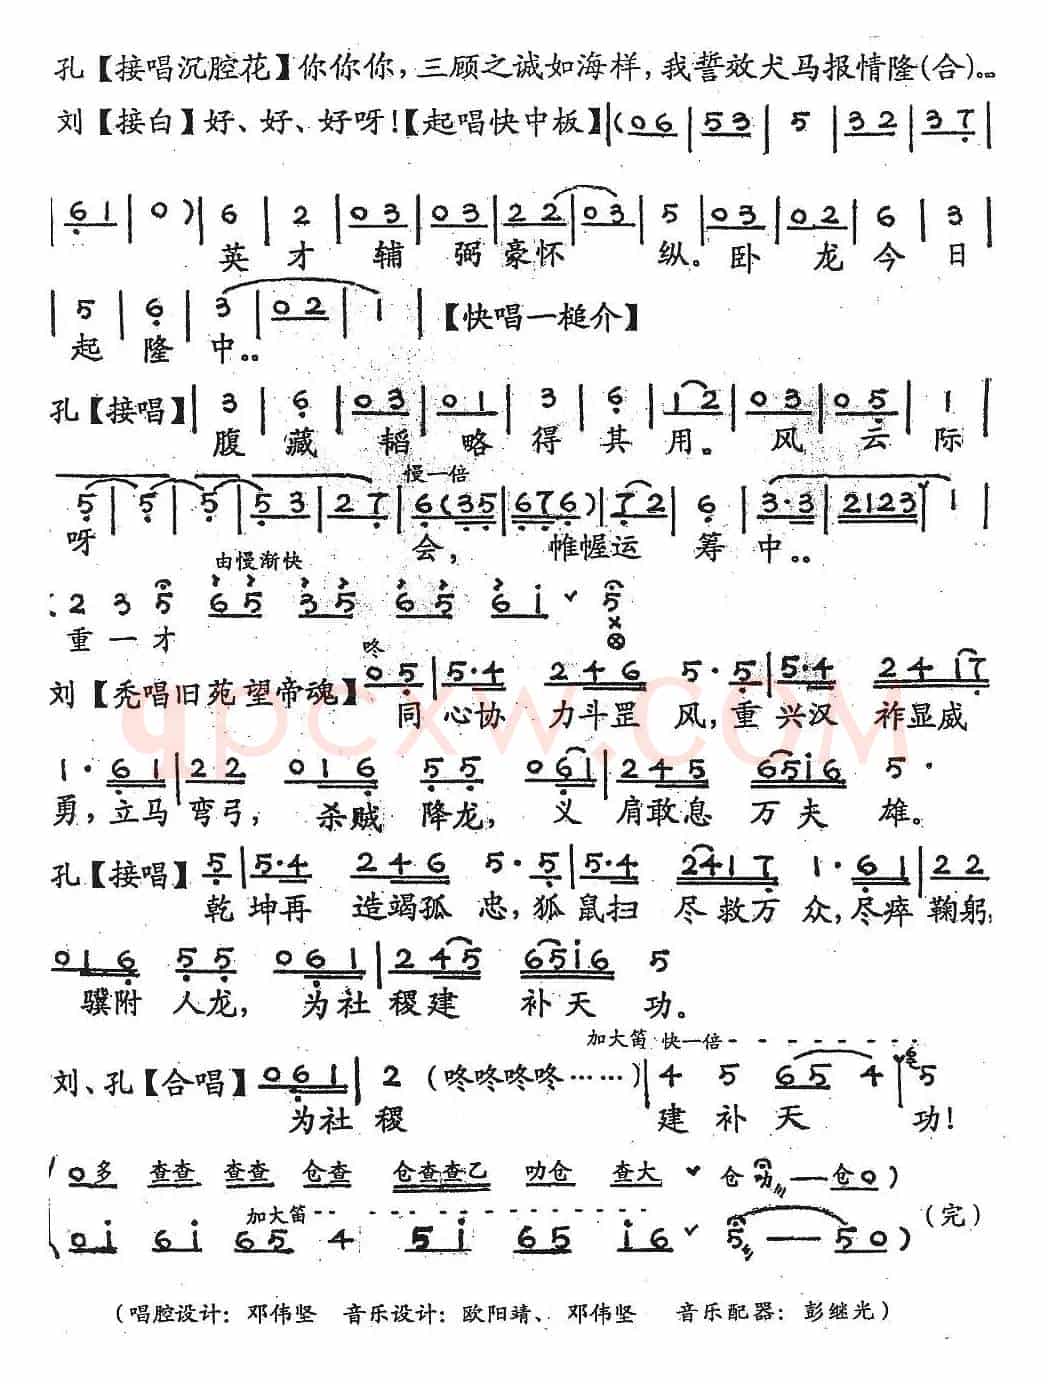 孔【接唱沉腔花】你你你，三顾之诚如海样，我誓效犬马报情隆(合)。。
刘【接白】好、好、好呀！【起唱快中板】|(06|53|5|32|37|
|61|0)|6|2|03|03|22|03|5|03|02|6|3|
英才辅弼豪怀纵。卧龙今日
|5|6|3|02|1|【快唱一槌介】
起隆中。。
孔【接唱】|3|6|03|01|3|6|12|03|05|1|
腹藏韬略得其用。风云际
慢一倍
5|5|5|53|27|6(35|676)|72|6|3·3|2123|1|
呀会，帷幄运筹中。。
由慢渐快
2 3 5 65 35 65 6i 5
重一才
咚
刘【秃唱旧苑望帝魂】05|5·4 246 5·5|5·4 2417
同心协力斗罡风，重兴汉祚显威
1·61|22 016 55 061|245 65i6 5·
勇，立马弯弓，杀贼降龙，义肩敢息万夫雄。
孔【接唱】5|5·4 246 5·5|5·4 2417 1·61|22
乾坤再造竭孤忠，狐鼠扫尽救万众，尽瘁鞠躬；
016 55 061|245 65i6 5
骥附人龙，为社稷建补天功。
加大笛 快一倍
刘、孔【合唱】061|2 (咚咚咚咚……)|4 5 65 4 5
为社稷建补天功！
(0多 查查 查查 仓查 仓查查乙 叻仓 查大 仓叻—仓0)
加大笛
(0i 6i 65 4 5i 65 i6 5—50)
(完)
(唱腔设计：邓伟坚 音乐设计：欧阳靖、邓伟坚 音乐配器：彭继光)
qpcxw.COM